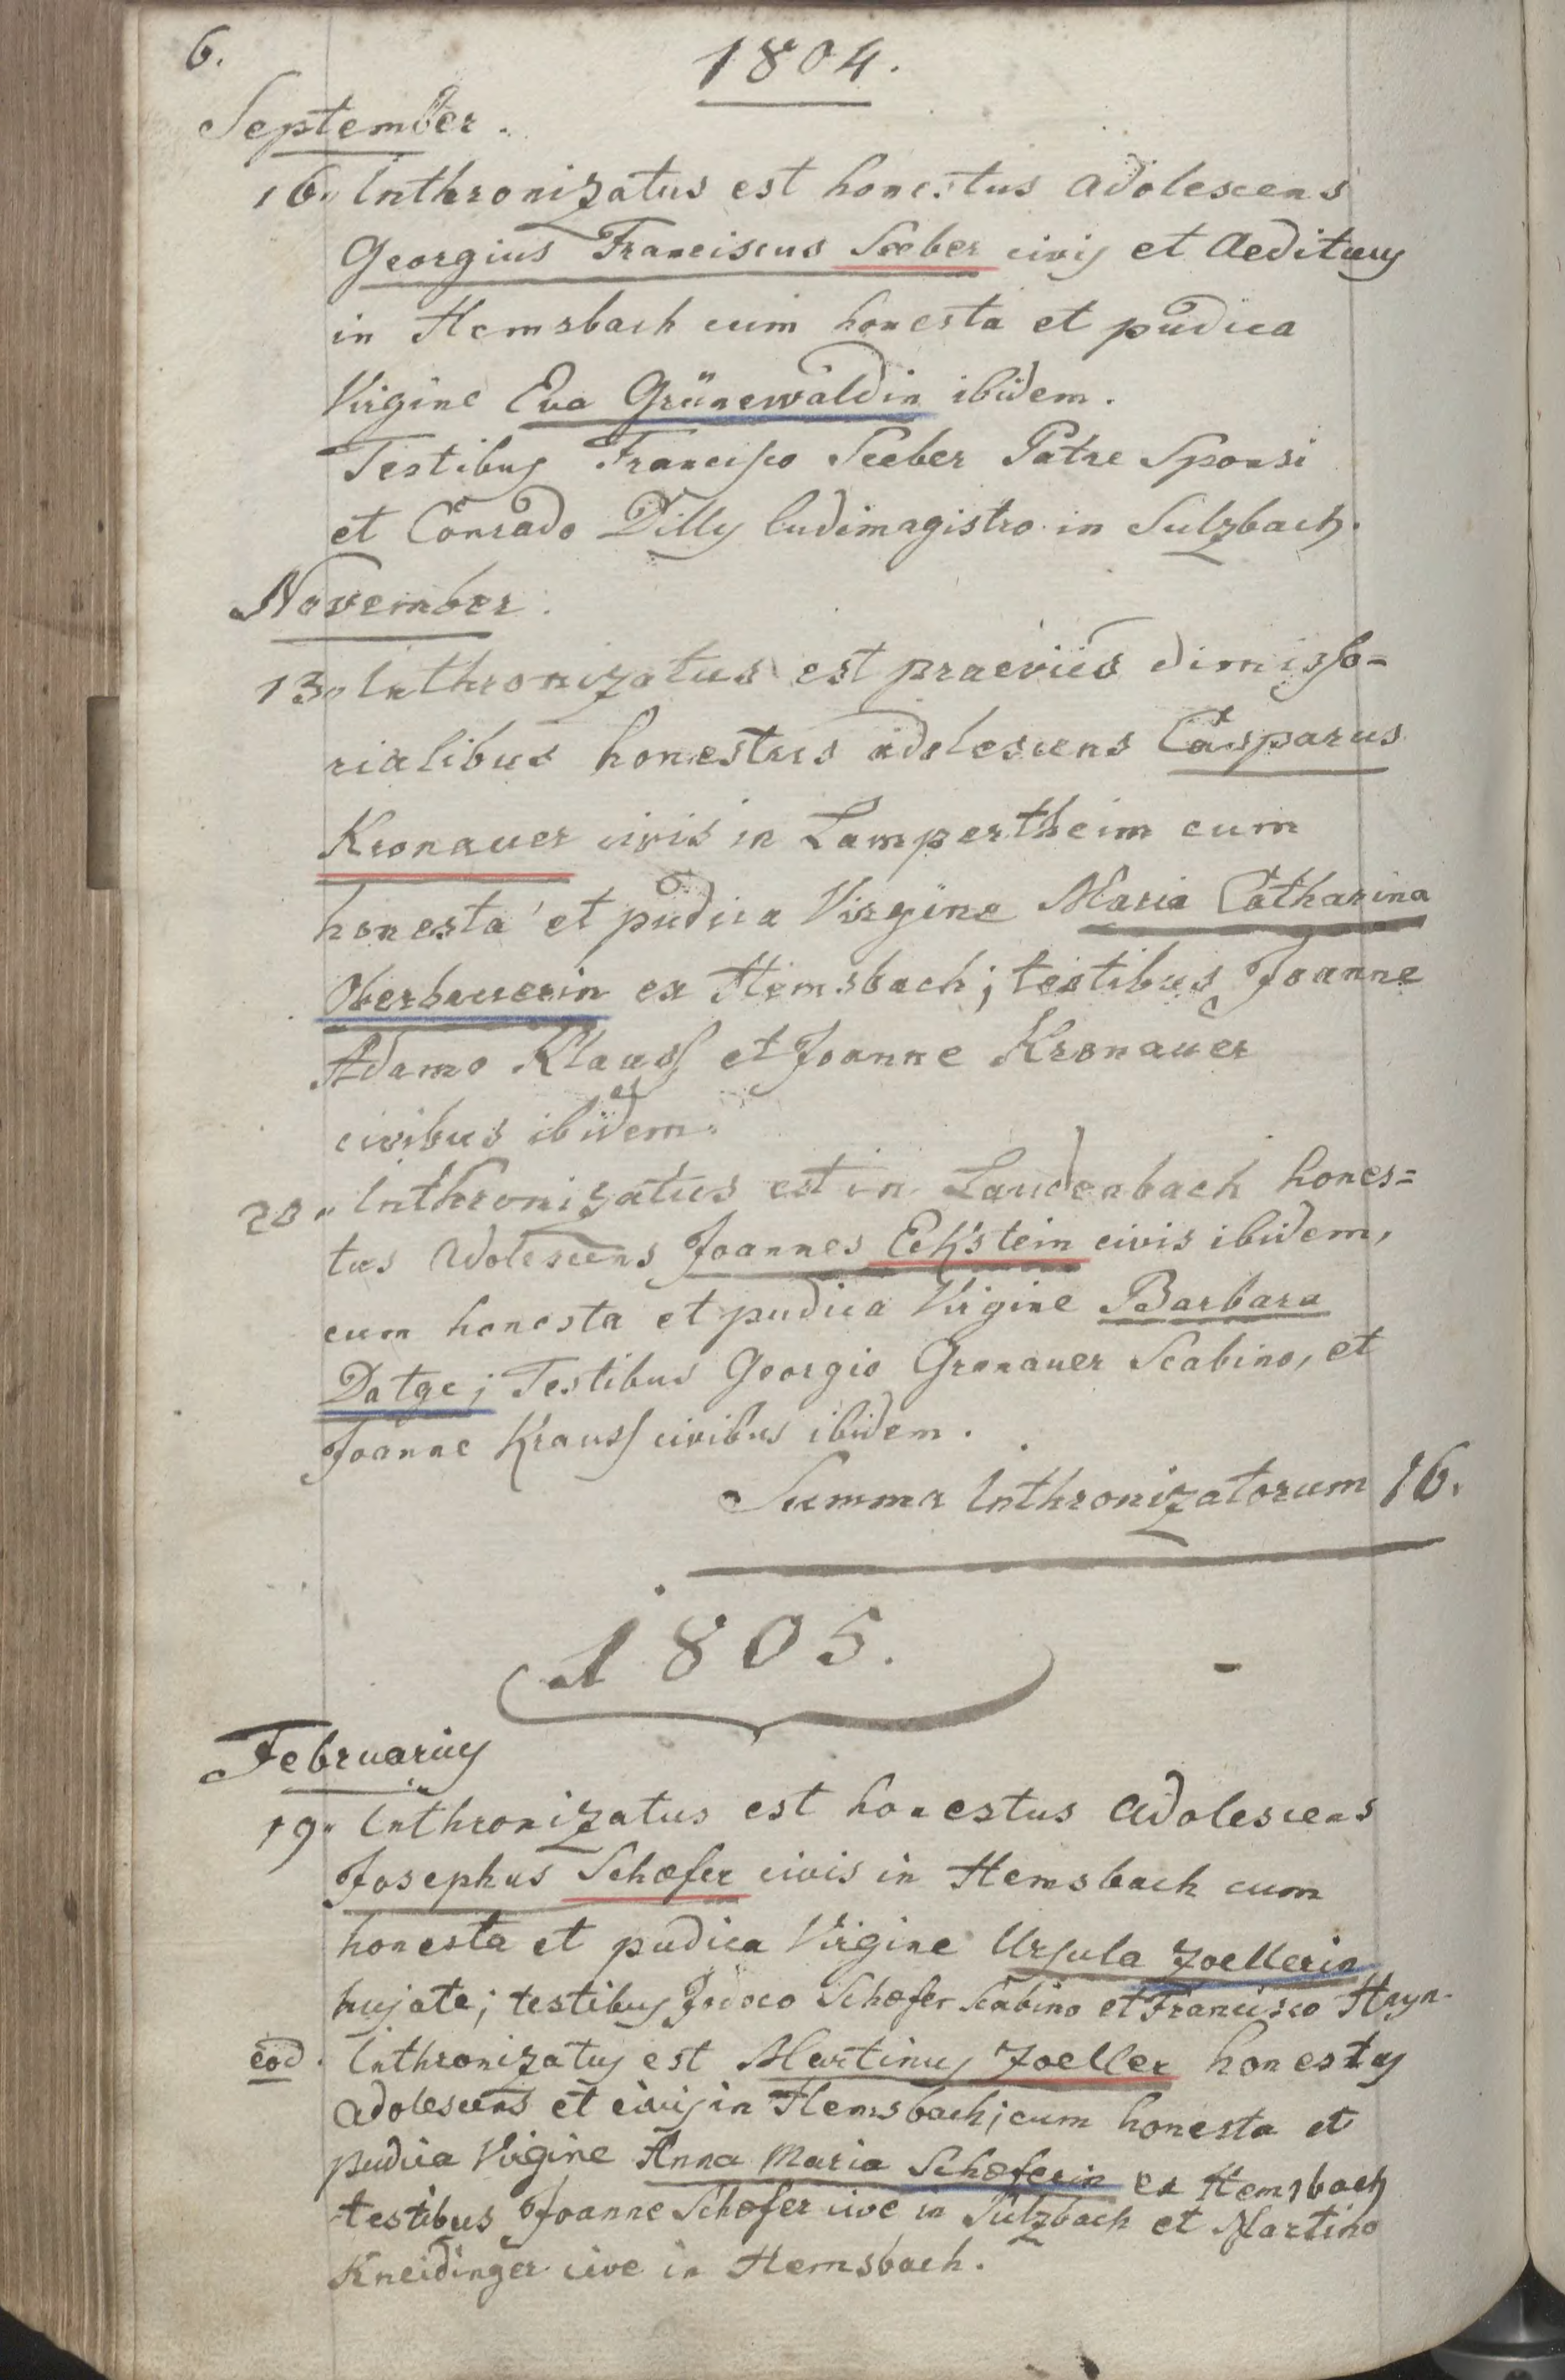 6.
1804.
September.
16. Inthronizatus est honestus adolescens
Georgius Franciscus Seeber civis et Aedituus
in Hemsbach cum honesta et pudica
Virgine Eva Grünewaldin ibidem.
Testibus Francisco Seeber Patre Sponsi
et Conrado Dilly ludimagistro in Sulzbach.
November.
13. Inthronizatus est praeviis dimisso=
rialibus honestus adolescens Casparus
Kronauer civis in Lampertheim cum
honesta et pudica Virgine Maria Catharina
Oberbauerin ex Hemsbach; testibus Joanne
Adamo Klauss et Joanne Kronauer
civibus ibidem.
20. Inthronizatus est in Laudenbach hones=
tus adolescens Joannes Eckstein civis ibidem,
cum honesta et pudica Virgine Barbara
Datge; Testibus Georgio Gronauer Scabino, et
Joanne Krauss civibus ibidem.
Summa Inthronizatorum 16.
1805.
Februarius
19. Inthronizatus est honestus adolescens
Josephus Schæfer civis in Hemsbach cum
honesta et pudica Virgine Ursula Zoellerin
hujate; testibus Jodoco Schæfer Scabino et Francisco Hayn.
eod. Inthronizatus est Martinus Zoeller honestus
adolescens et civis in Hemsbach; cum honesta et
pudica Virgine Anna Maria Schæferin ex Hemsbach
testibus Joanne Schæfer cive in Sulzbach et Martino
Kneidinger cive in Hemsbach.